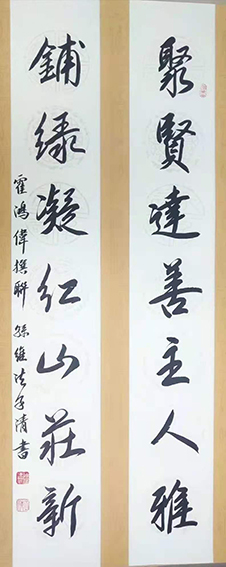 聚賢達善主人雅
鋪緑凝红山莊新
霍鴻偉撰聯 孙維法子清書